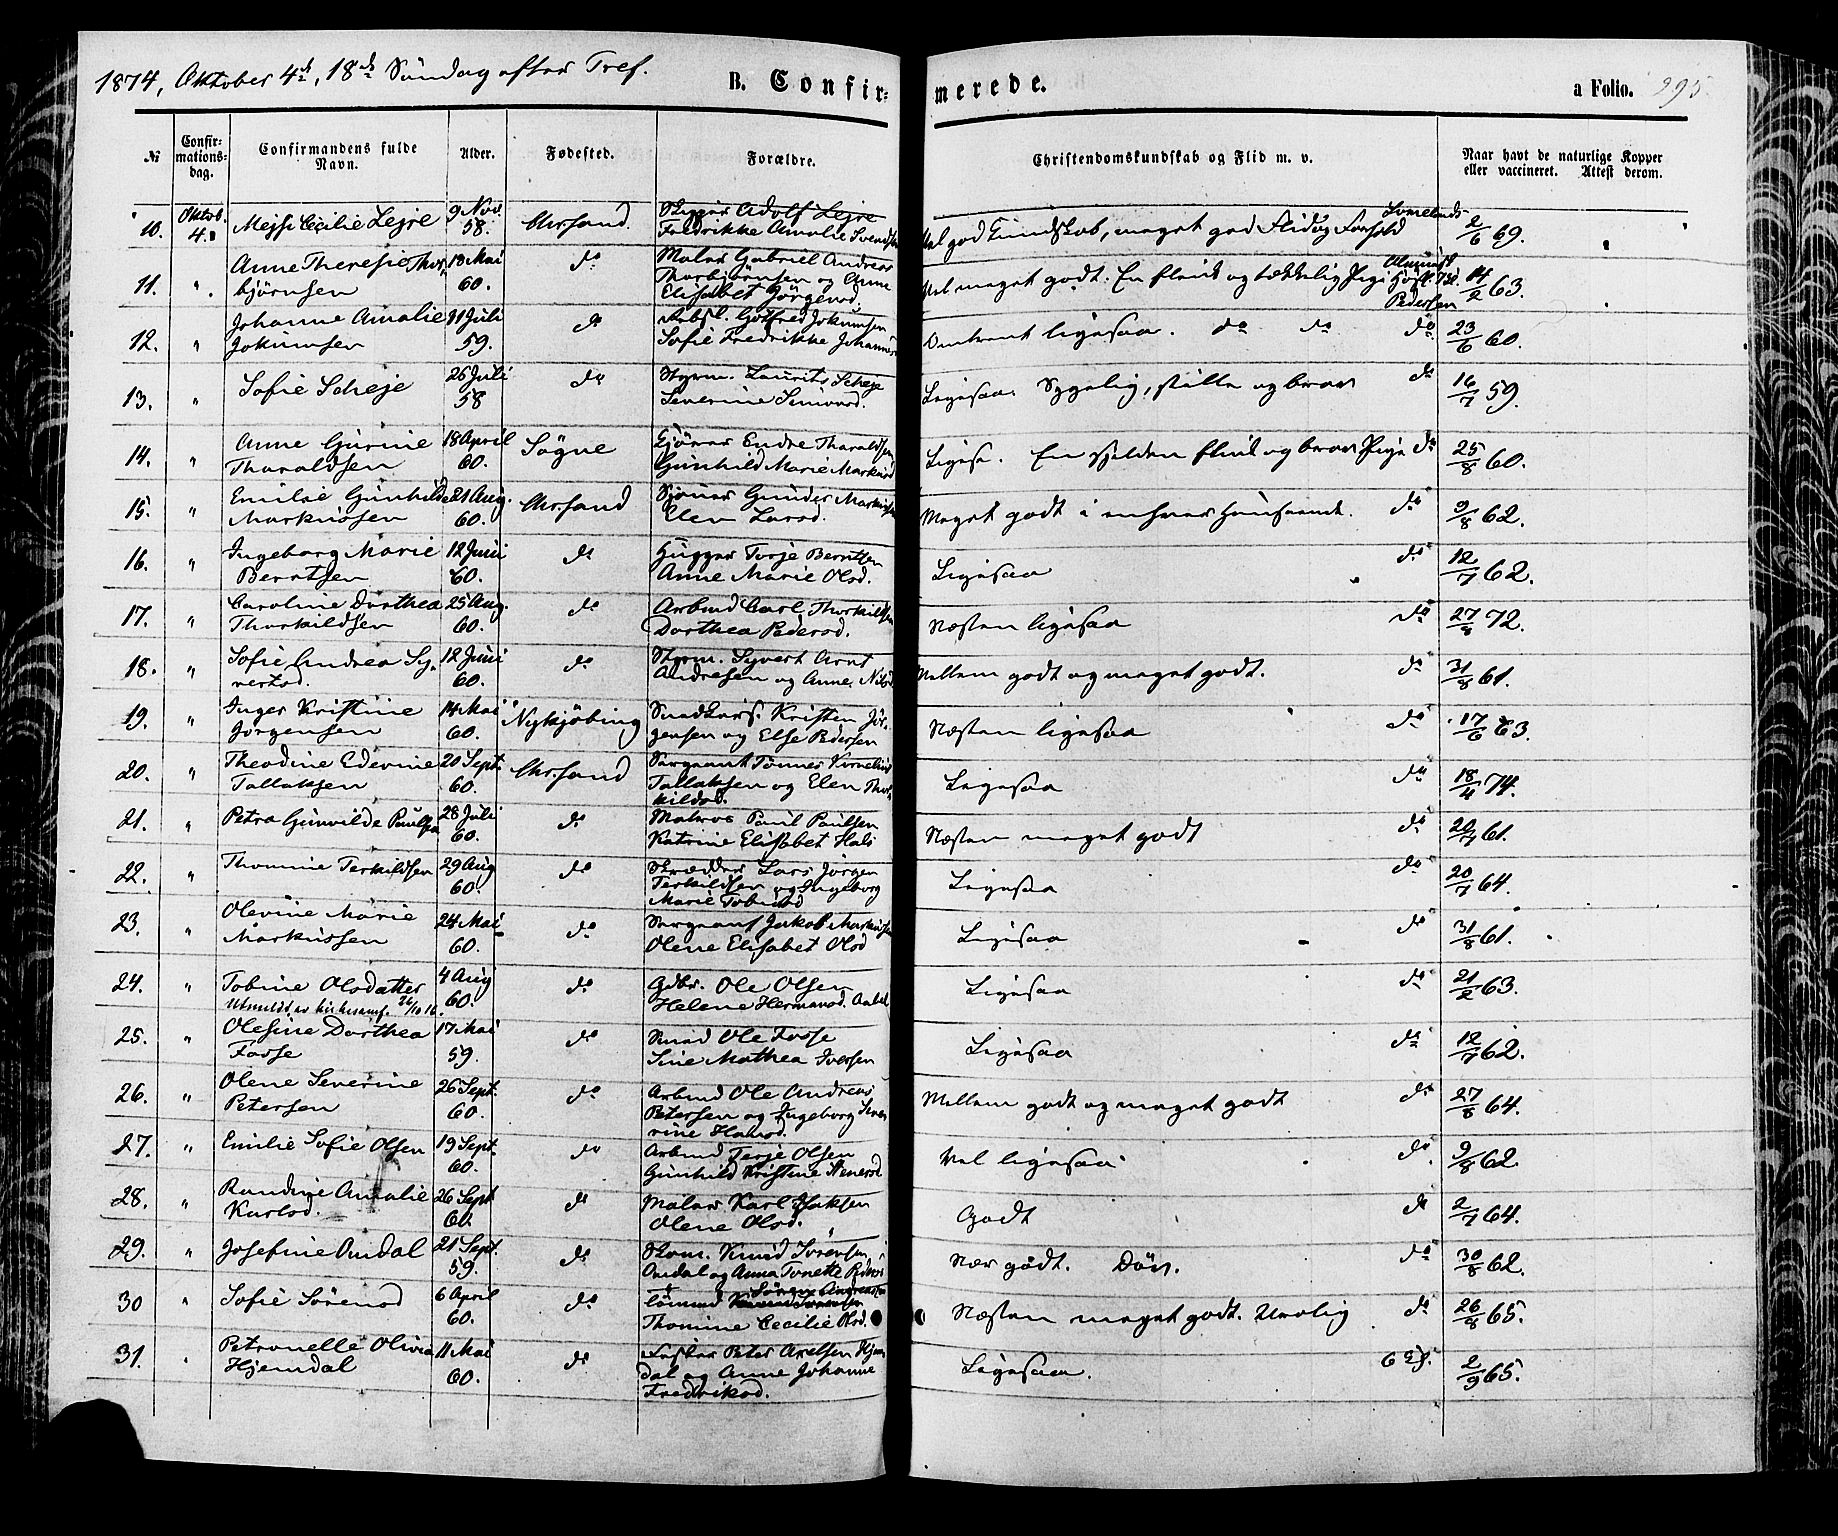 1874, Oktober 4de, 18de Søndag efter Tref.
B. Confir-
merede.
a Folio. 295.
№
Confir-
mations-
dag.
Confirmandens fulde
Navn.
Alder.
Fødested.
Forældre.
Christendomskundskab og Flid m. v.
Naar havt de naturlige Kopper
eller vaccineret. Attest derom.
10. Oktob. 4. Cecilie Lejre 9 Nov. 58. Chrsand. Adolf Lejre
Fredrikke Amalie
Vel god Kundskab, meget god Flid og Forhold 2/6 69.
11. " Anne Theresie Thor-
bjørnsen 18 Mai 60. do Maler Gabriel Andreas
Thorbjørnsen og Anne
Elisabet Jørgensd.
Vel meget godt. En flink og tækkelig Pige
Pedersen 14/2 63.
12. " Johanne Amalie
Jokumsen 11 Juli 59. do Arbsl. Gotfred Jokumsen
Sofie Fredrikke
Omtrent ligesaa. do do do 23/6 60.
13. " Sofie Scheje 26 Juli 58 do Styrm. Laurits Scheje
Severine
Ligesaa. Sygelig, stille og brav do 16/7 59.
14. " Anne Gurine
Tharaldsen 18 April 60. Søgne Endre Tharaldsen
Gunhild Marie
Ligesaa. En sjelden flink og brav Pige do 25/8 60.
15. " Emilie Gunhilde
Markussen 21 Aug. 60. Chrsand Gunder Markussen
Elen Larsd.
Meget godt i enhver Henseende. do 9/8 62.
16. " Ingeborg Marie
Berntsen 12 Juni 60. do Terje Berntsen
Anne Marie Olsd.
Ligesaa do 12/7 62.
17. " Caroline Dorthea
Thorkildsen 25 Aug. 60. do Arbmd Carl Thorkildsen
Dorthea Pedersd.
Næsten ligesaa do 27/8 72.
18. " Sofie Andrea Sy-
vertsd. 12 Juni 60. do Styrm. Syvert Arnt
Andresen og Anne
Mellem godt og meget godt. do 31/8 61.
19. " Inger Kristine
Jørgensen 14 Mai 60. Nykjøbing Kristen Jør-
gensen og Else Pedersen
Næsten ligesaa do 17/6 63.
20. " Theodine Edevine
Tallaksen 20 Sept. 60. Chr.sand Sergeant Tønnes Kornelius
Tallaksen og Elen Thor-
kildsd.
Ligesaa do 18/4 74.
21. " Petra Gunvilde Paulsen 28 Juli 60. do Matros Paul Paulsen
Katrine Elisabet
Næsten meget godt do 20/7 61.
22. " Thomine Terkildsen 29 Aug 60. do Skrædder Lars Jørgen
Terkildsen og Ingeborg
Marie
Ligesaa do 20/7 64.
23. " Olevine Marie
Markussen 24 Mai 60. do Sergeant Jakob Markussen
Olene Elisabet Olsd
Ligesaa do 31/8 61.
24. " Tobine Olsdatter
Utmeldt av kirkesamf. 26/10 16. 4 Aug 60. do Ole Olsen
Helene Hermansd.
Ligesaa do 21/2 63.
25. " Olesine Dorthea
Fosse 17 Mai 59. do Smed Ole Fosse
Sine Mathea Iversen
Ligesaa do 12/7 62.
26. " Olene Severine
Petersen 26 Sept. 60. do Arbmd Ole Andreas
Petersen og Ingeborg Seve-
rine Hansd.
Mellem godt og meget godt do 27/8 64.
27. " Emilie Sofie Olsen 19 Sept. 60. do Arbmd Terje Olsen
Gunhild Kristine
Vel ligesaa do. 9/8 62.
28. " Randine Amalie
Karlsd. 26 Sept 60. do Maler Karl Isaksen
Olene Olsd.
Godt do 2/7 64.
29. " Josefine Omdal 21 Sept. 59. do Skom. Knud Sørensen
Omdal og Anna Tonette
Nær godt. Døv. do 30/8 62.
30 " Sofie Sørensd 6 April 60. do Tømmd Søren Andreassen
Thomine Cecilie Olsd.
Næsten meget godt. Urolig do 26/8 65.
31. " Petronelle Olivia
Hjemdal 11 Mai 60. do Peter Axelsen Hjem-
dal og Anne Johanne
Fredriksd.
Ligesaa. 2/9 65.